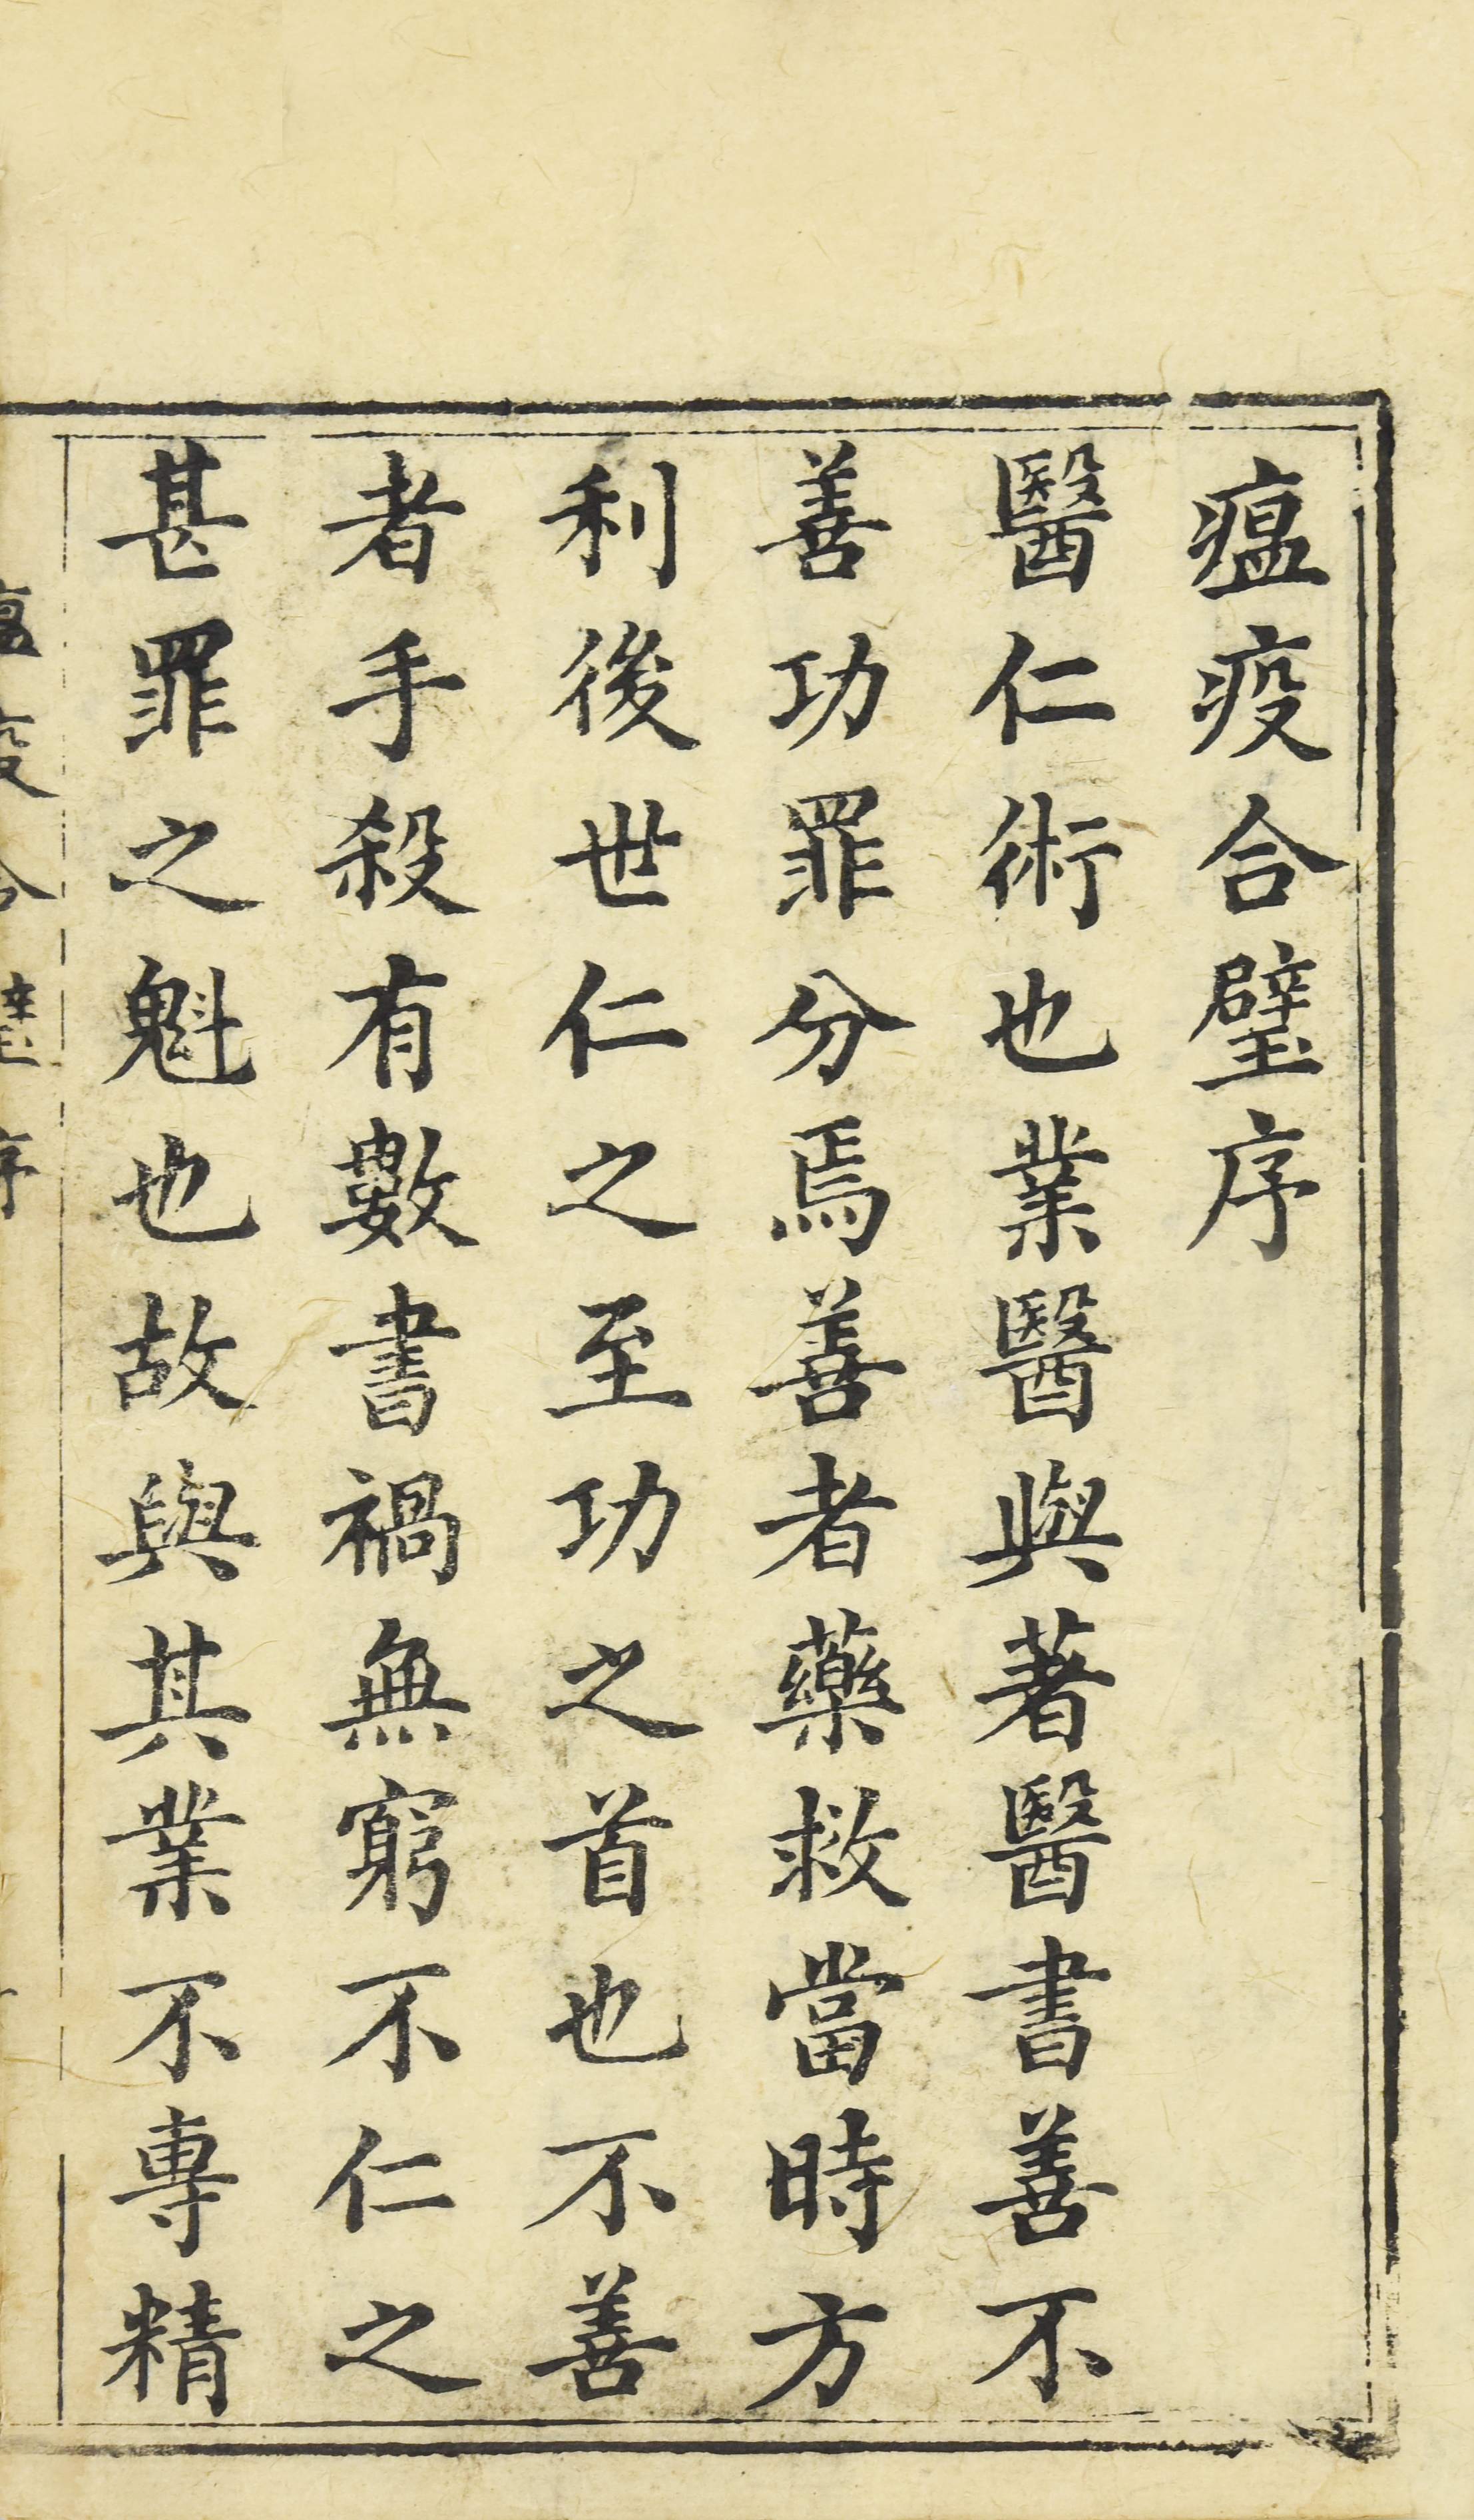 瘟疫合璧序
醫仁術也業醫與著醫書善不
善功罪分焉善者藥救當時方
利後世仁之至功之首也不善
者手殺有數書禍無窮不仁之
甚罪之魁也故與其業不專精